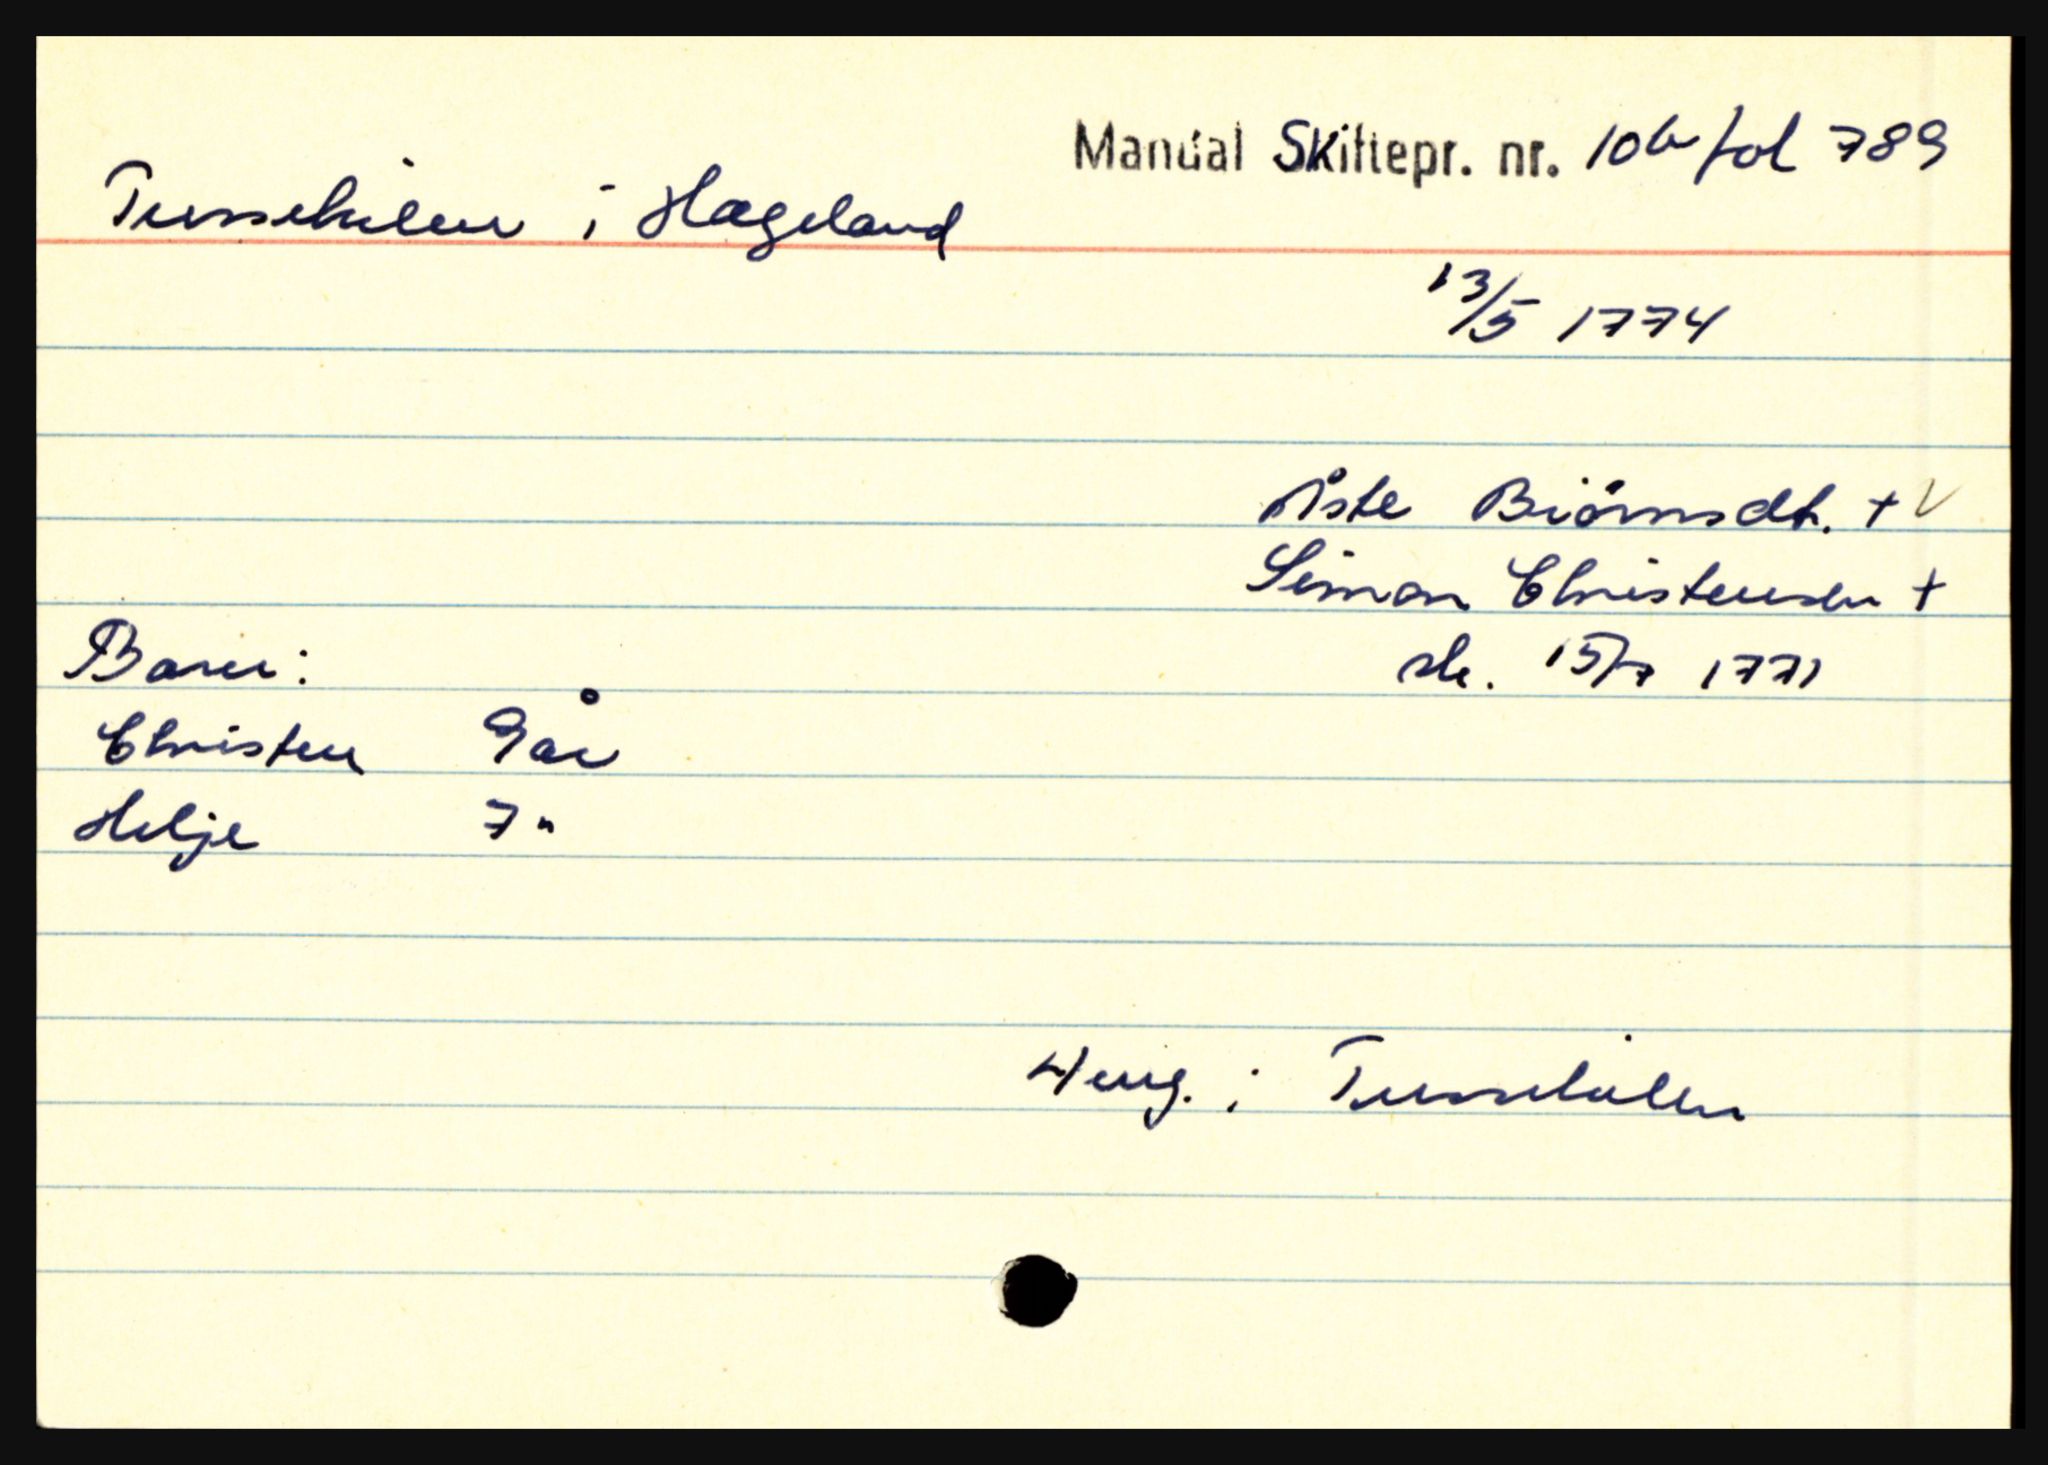 Mandal Skiftepr. nr. 10b fol 789
Tussekilen i Hægeland
13/5 1774
Åste Biörnsdt. + V
Simon Christensen +
sk. 15/7 1771
Barn:
Christen 9 år
Helje 7 "
Heug. i Tussekilen